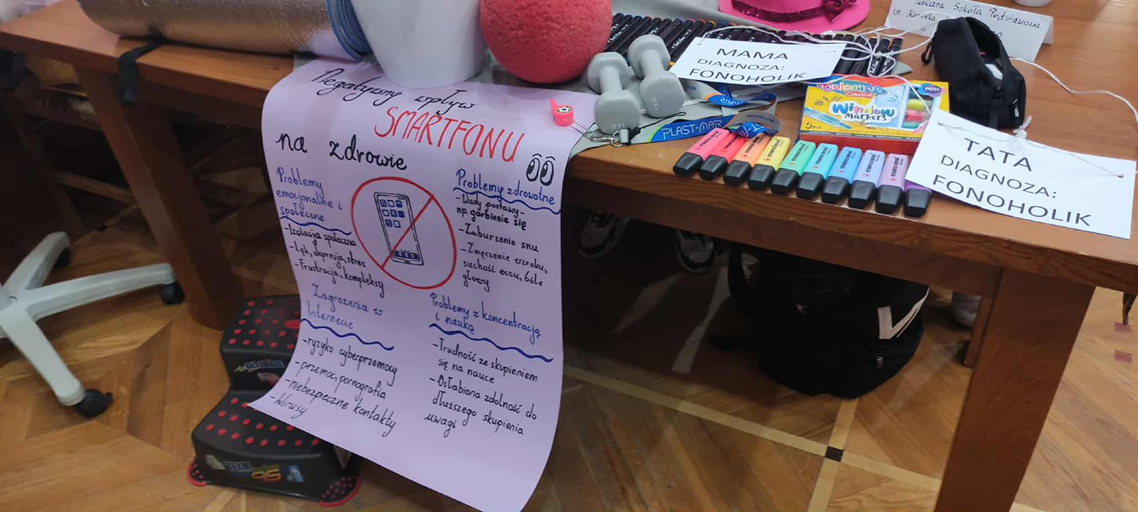 Negatywny wpływ
SMARTFONU
na zdrowie
Problemy
emocjonalne i
społeczne
-Izolacja społeczna
-Lęk, depresja, stres
-Frustracja, kompleksy
Zagrożenia w
Internecie
-ryzyko cyberprzemocy
-przemoc, pornografia
-niebezpieczne kontakty
-Wirusy
Problemy zdrowotne
-Wady postawy-
np. garbienie się
-Zaburzenie snu
-Zmęczenie wzroku,
suchość oczu, bóle
głowy
Problemy z koncentracją
i nauką
-Trudność ze skupieniem
się na nauce
-Osłabiona zdolność do
dłuższego skupienia
uwagi
MAMA
DIAGNOZA:
FONOHOLIK
PLAST-MAR
Window
Markers
TATA
DIAGNOZA:
FONOHOLIK
Szkoła Podstawowa